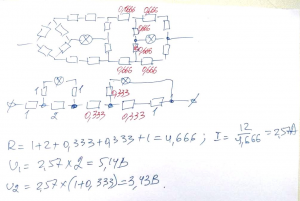 0,666 0,666
0,666
0,666
0,666 0,666
1 1 1
1 2 0,333 0,333 1
R = 1+2+0,333+0,333+1 = 4,666 ; I = 12/4,666 = 2,57A
U₁ = 2,57 × 2 = 5,14В
U₂ = 2,57 × (1+0,333) = 3,43В.